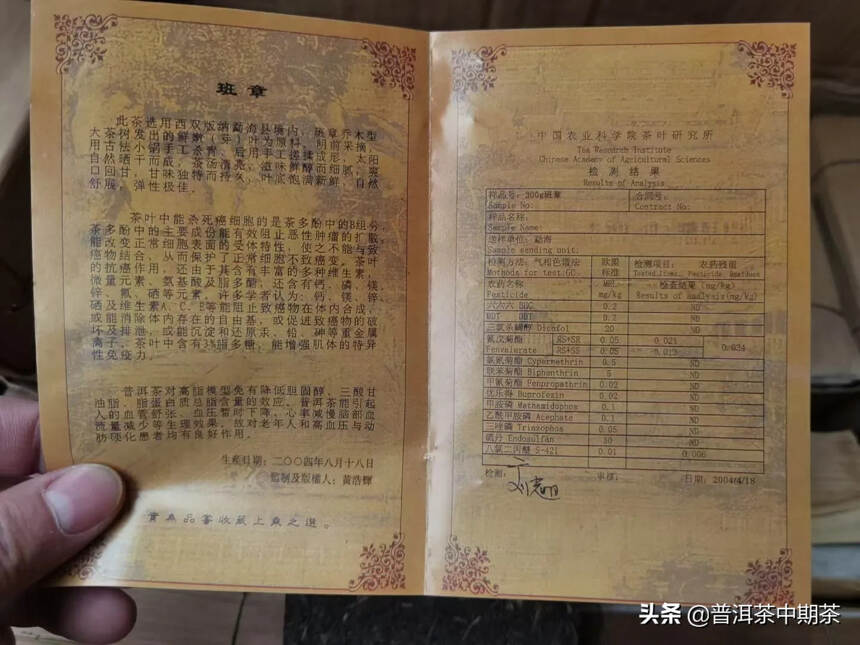 班章
此茶选用西双版纳勐海县境内，班章乔木型
大茶树发出的鲜嫩（芽）叶为原料，明前采摘，
用古法小锅手工杀青，后用手工揉揉成形，太阳
自然晒干而成，茶汤清亮、滋味鲜醇而细腻，爽
口回甘，甘味独特而持久，叶底饱满新鲜，自然
舒展，弹性极佳。
茶叶中能杀死癌细胞的是茶多酚中的B组分，
茶多酚中的主要成份能有效阻止恶性肿瘤的扩散，
能改变正常细胞表面的受体特性，使之不能与致
癌物结合，从而保护了正常细胞不致癌变。茶叶
的抗癌作用，还由于其含有丰富的多种维生素，
微量元素，氨基酸及脂多醣，还含有钙、磷、镁
锌、氟、硒等元素，许多学者认为：钙、镁、锌、
硒及维生素A、C、E等能阻止致癌物在体内合成，
或能消除体内存在的自由基，或促进致癌物的破
坏及排泄，或能沉淀和还原汞、铅、砷等重金属
离子。茶叶中含有3%脂多糖，能增强肌体的特异
性免疫力。
普洱茶对高脂模型兔有降低胆固醇、三酸甘
油脂、脂蛋白质总脂含量的效应，普洱茶能引起
人的血管舒张、血压暂时下降、心率减慢脑部血
流量减少等生理效果，故对老年人和高血压与动
肪硬化患者均有良好作用。
生产日期：二〇〇四年八月十八日
监制及版權人：黄浩輝
實為品茗收藏上烝之選。
中国农业科学院茶叶研究所
Tea Research Institute
Chinese Academy of Agricultural Sciences
检测结果
Results of Analysis
样品号：300g班章 合同号：
Sample No: Contract No:
样品名称：
Sample Name:
送样单位：勐海
Sample sending unit:
检测方法：气相色谱法 欧盟 检测项目：农药残留
Methods for test:GC 标准 Tested Items: Pesticide Residues
农药名称 MRL 检查结果 (mg/kg)
Pesticide mg/kg Results of analysis(mg/kg)
六六六 BHC 0.2 ND
DDT DDT 0.2 ND
三氯杀螨醇 Dicofol 20 ND
氰戊菊酯 RS+SR 0.05 0.021 0.034
Fenvalerate RS+SS 0.05 0.013
氯氰菊酯 Cypermethrin 0.5 ND
联苯菊酯 Biphenthrin 5 ND
甲氰菊酯 Fenpropathrin 0.02 ND
优乐得 Buprofezin 0.02 ND
甲胺磷 Methamidophos 0.1 ND
乙酰甲胺磷 Acephate 0.1 ND
三唑磷 Triazophos 0.05 ND
硫丹 Endosulfan 30 ND
八氯二丙醚 S-421 0.01 0.006
检测： 审核： 日期：2004/4/18
头条 @普洱茶中期茶